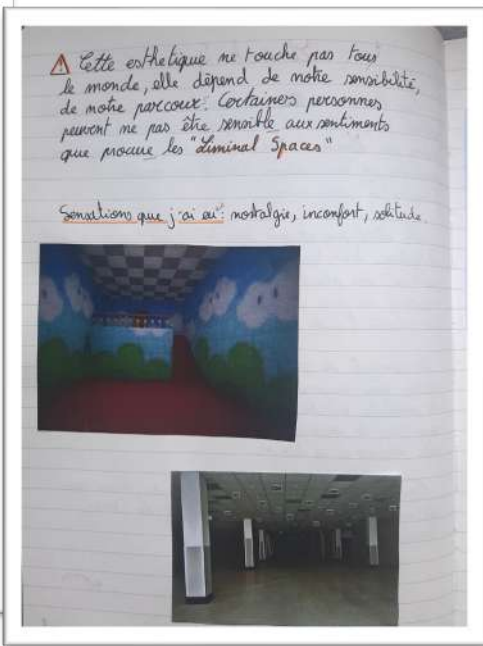 ⚠ Cette esthetique ne touche pas tous
le monde, elle dépend de notre sensibilité,
de notre parcour. Certaines personnes
peuvent ne pas être sensible aux sentiments
que procure les "Liminal Spaces"
Sensations que j'ai eu : nostalgie, inconfort, solitude.